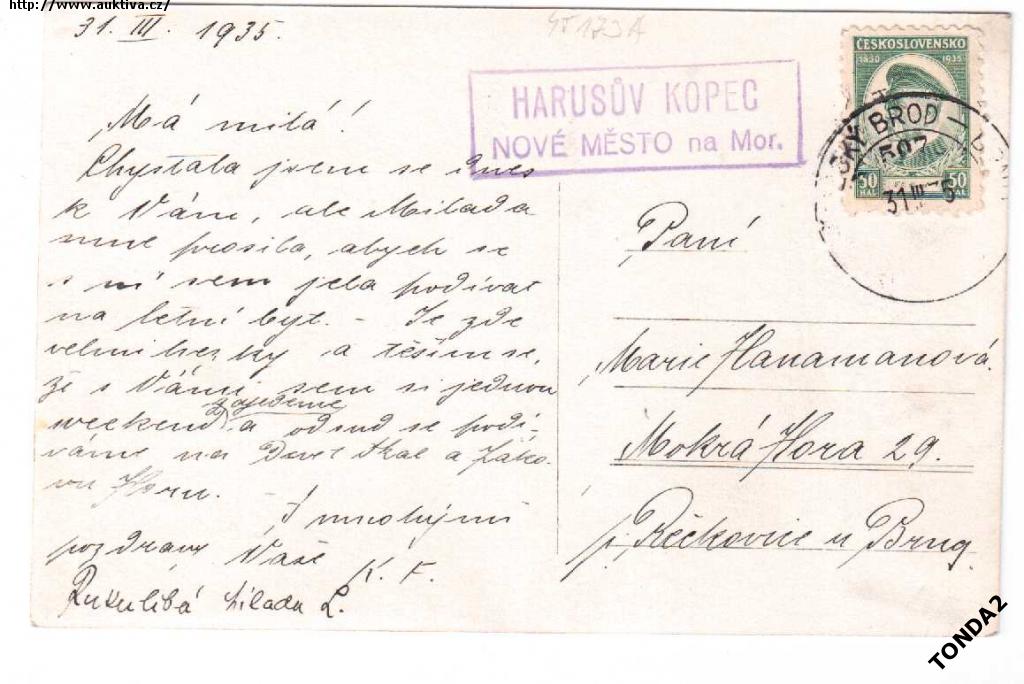 http://www.auktiva.cz/
31. III. 1935.
HARUSŮV KOPEC
NOVÉ MĚSTO na Mor.
ČESKOSLOVENSKO
1830 1935
50 50
HAL HAL
BROD
597
31 III
Má milá!
Chystala jsme se dnes
k Vám, ale Milada
mne prosila, abych se
s ní sem jela podívat
na letní byt. – Je zde
velmi hezky a těším se,
že s Vámi sem si jednou
zajedeme
weekend a odsud se podí-
váme na Devět Skal a Žáko-
vu Horu. –
S mnohými
pozdravy Vaše
K. F.
Rukulíbá Milada L.
Paní
Marie Hanamanová.
Mokrá Hora 29.
p. Řečkovice u Brna.
TONDA2